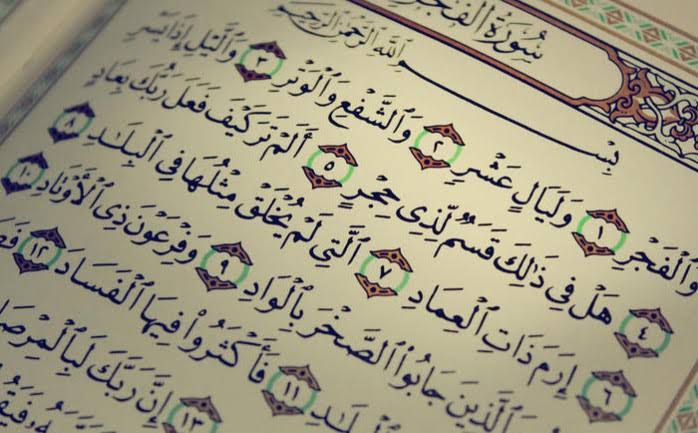 سُورَةُ الفَجْرِ
بِسْمِ ٱللَّهِ ٱلرَّحْمَٰنِ ٱلرَّحِيمِ
وَٱلْفَجْرِ ١ وَلَيَالٍ عَشْرٍ ٢ وَٱلشَّفْعِ وَٱلْوَتْرِ ٣ وَٱلَّيْلِ إِذَا يَسْرِ
٤ هَلْ فِى ذَٰلِكَ قَسَمٌ لِّذِى حِجْرٍ ٥ أَلَمْ تَرَ كَيْفَ فَعَلَ رَبُّكَ بِعَادٍ
٦ إِرَمَ ذَاتِ ٱلْعِمَادِ ٧ ٱلَّتِى لَمْ يُخْلَقْ مِثْلُهَا فِى ٱلْبِلَٰدِ ٨
ٱلَّذِينَ جَابُوا۟ ٱلصَّخْرَ بِٱلْوَادِ ٩ وَفِرْعَوْنَ ذِى ٱلْأَوْتَادِ ١٠
ٱلْبِلَٰدِ ١١ فَأَكْثَرُوا۟ فِيهَا ٱلْفَسَادَ ١٢
١٣ إِنَّ رَبَّكَ لَبِٱلْمِرْصَا